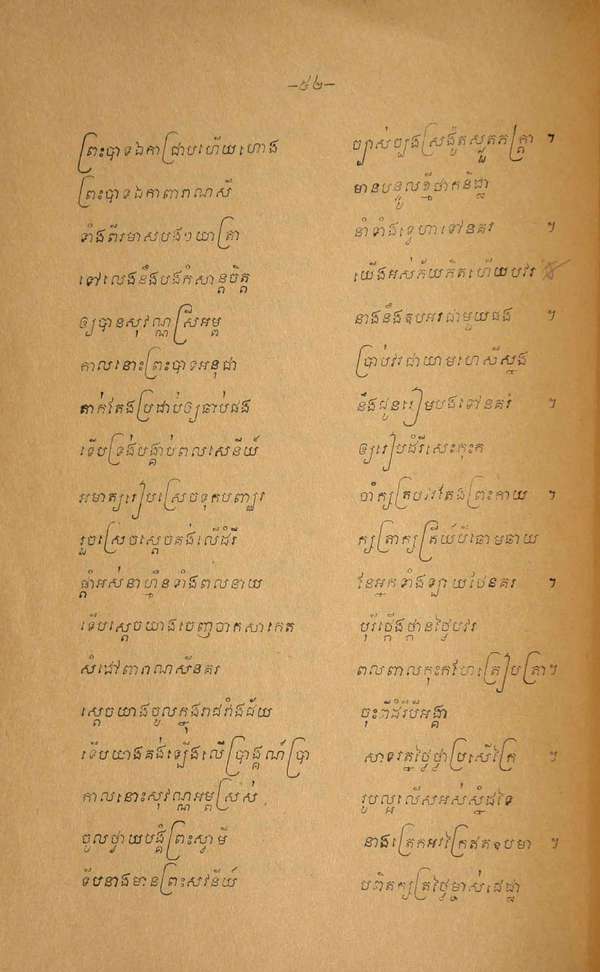 –៥២–
ព្រះបាទឯកាជ្រាបហើយហោង ច្បាស់ច្បងស្រងូតស្លួតភក្ត្រា ៗ
ព្រះបាទឯកាពារាណសី មានបន្ទូលថ្មីថាកនិដ្ឋា
ទាំងពីរមាសបងៗយាត្រា នាំទាំងទ្វេហាទៅនគរ ៗ
ទៅលេងនឹងបងកំសាន្តចិត្ត យើងអស់ភ័យភិតហើយបវរ
ឲ្យបានសុវណ្ណស្រីអម្ព នាងនឹងឧបអរជាមួយផង
កាលនោះព្រះបាទអនុជា ប្រាប់វរជាយាមហេសីស្នង
តាក់តែងប្រដាប់ឲ្យឆាប់ផង នឹងជូនរៀមបងទៅនគរ ៗ
ទើបទ្រង់បង្គាប់ពលសេនីយ៍ ឲ្យរៀបដំរីសេះកុះក
អមាត្យរៀបស្រេចទុកបញ្ឈរ ចាំក្សត្របវរតែងព្រះកាយ ៗ
រួចស្រេចស្ដេចគង់លើដំរី ក្សត្រាក្សត្រីយ៍បីឆោមឆាយ
ផ្ដាំអស់នាហ្មឺនទាំងពលនាយ នៃអ្នកទាំងឡាយថែនគរ ៗ
ទើបស្ដេចយាងចេញចាកសាកេត បុរីច្នើងថ្កានថ្លៃបវរ
សំដៅពារាណសីនគរ ពលពាលកុះកហែត្រៀបត្រា ៗ
ស្ដេចយាងចូលក្នុងរាជរាំងជ័យ ចុះពីដំរីបីអង្គា
ទើបយាងគង់ឡើងលើប្រាង្គណ៍ប្រា សាទរត្នថ្លៃថ្លាប្រសើរក្រៃ ៗ
កាលនោះសុវណ្ណអម្ពស្រស់ រូបល្អលើសអស់ស្នំដទៃ
ចូលថ្វាយបង្គំព្រះស្វាមី នាងត្រេកអរក្រៃឥតឧបមា ៗ
ទើបនាងមានព្រះសវនីយ៍ បពិតក្សត្រថ្លៃម្ចាស់ជេដ្ឋា